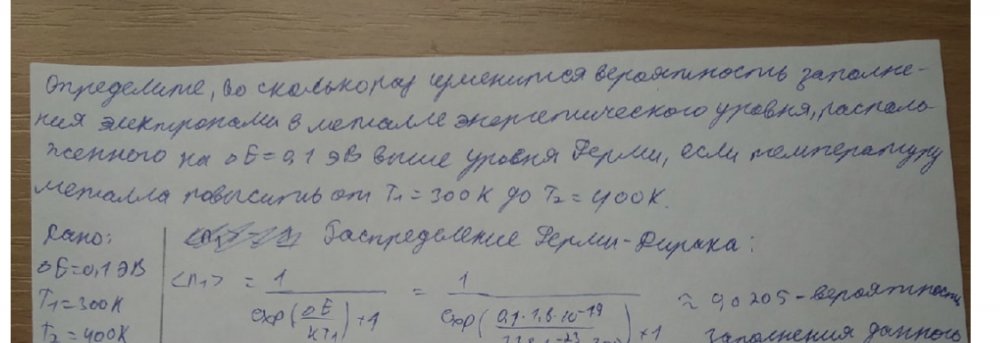 Определите, во сколько раз изменится вероятность заполне-
ния электронами в металле энергетического уровня, располо-
женного на ΔE=0,1 эВ выше уровня Ферми, если температуру
металла повысить от T₁=300К до T₂=400К.
Дано: Распределение Ферми-Дирака:
ΔE=0,1 эВ <n₁> = 1/(exp(ΔE/kT₁)+1) = 1/(exp(0,1·1,6·10⁻¹⁹/ )+1) ≈ 0,0205 - вероятность
T₁=300К
T₂=400К заполнения данного